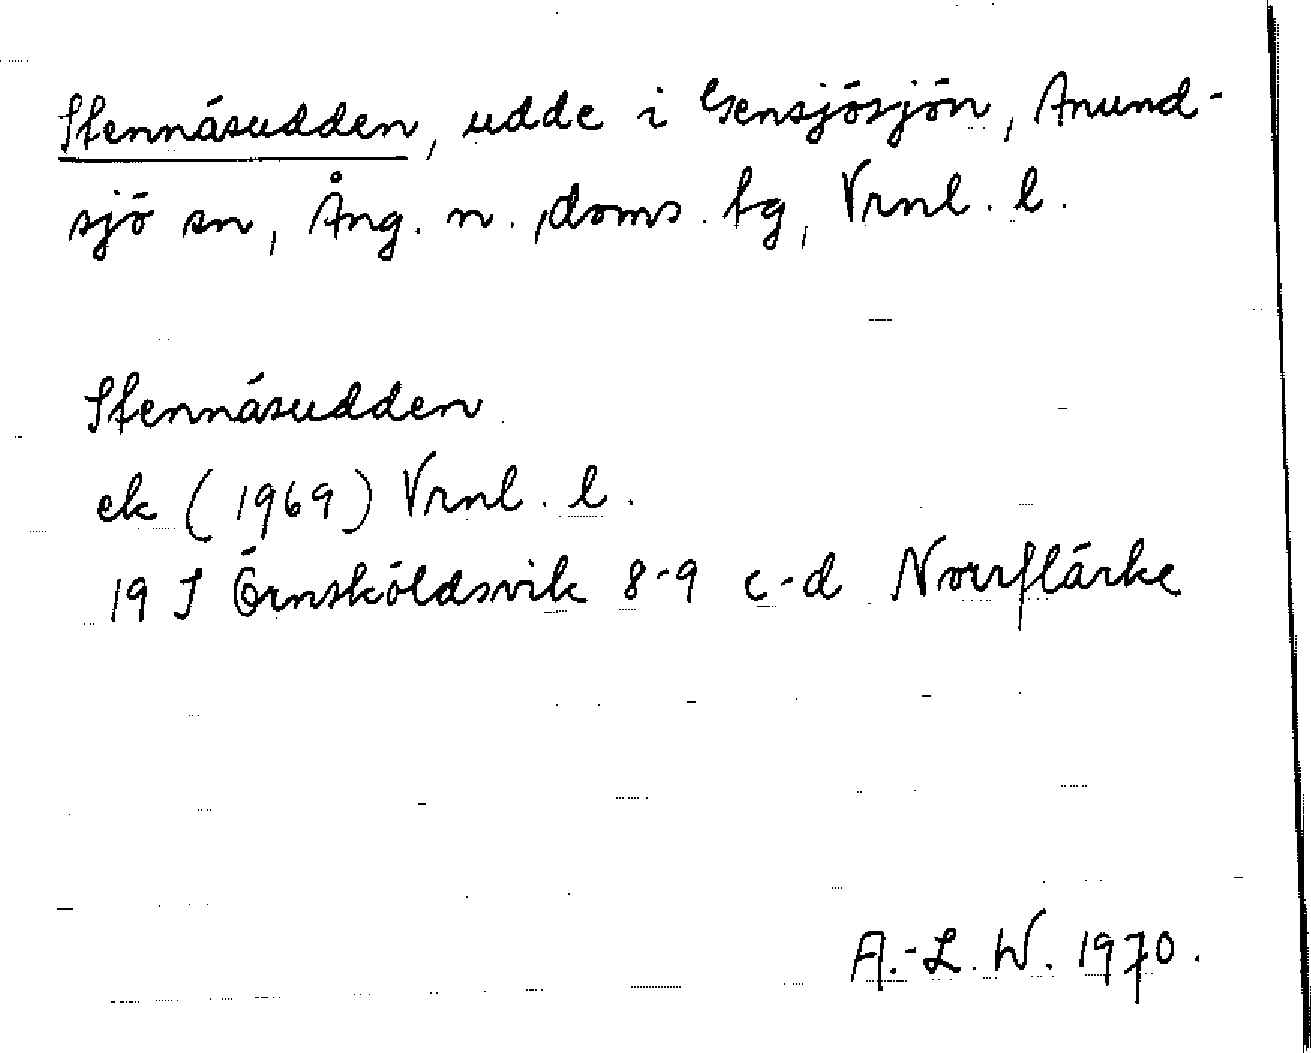 Stennäsudden, udde i Gensjösjön, Anund-
sjö sn, Ång. n. doms. tg, Vrnl. l.
Stennäsudden
ek (1969) Vrnl. l.
19 J Örnsköldsvik 8-9 c-d Norrflärke
A.-L. W. 1970.